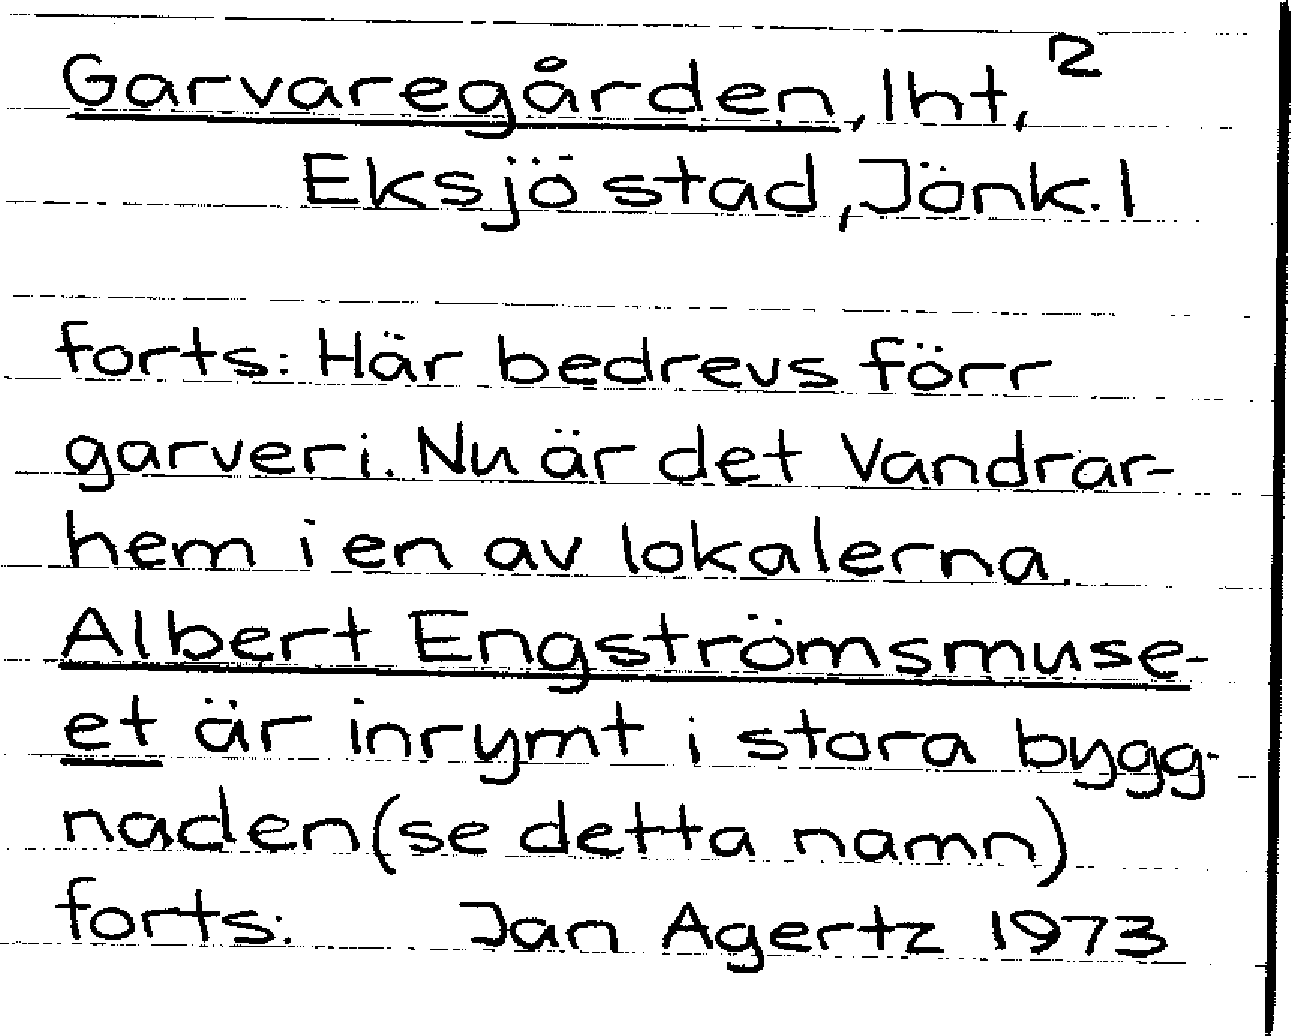 Garvaregården, lht, 2
Eksjö stad, Jönk. l
forts: Här bedrevs förr
garveri. Nu är det Vandrar-
hem i en av lokalerna.
Albert Engströmsmuse-
et är inrymt i stora bygg-
naden (se detta namn)
forts: Jan Agertz 1973